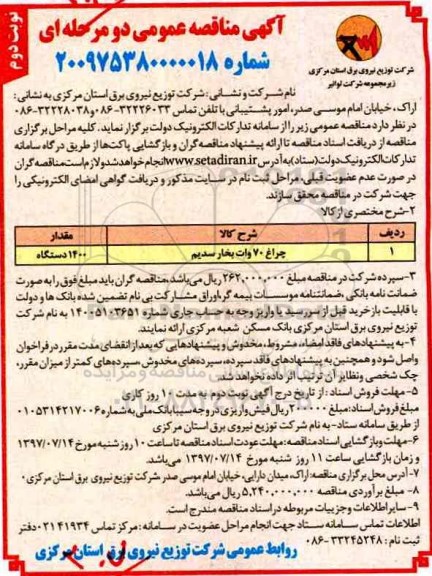 نوبت دوم
آگهی مناقصه عمومی دو مرحله ای
شماره ۲۰۰۹۷۵۳۸۰۰۰۰۰۱۸
شرکت توزیع نیروی برق استان مرکزی
زیرمجموعه شرکت توانیر
نام شرکت و نشانی: شرکت توزیع نیروی برق استان مرکزی به نشانی:
اراک، خیابان امام موسی صدر، امور پشتیبانی با تلفن تماس ۳۲۲۲۶۰۳۳-۰۸۶ و ۳۲۲۲۸۰۳۸-۰۸۶
در نظر دارد مناقصه عمومی زیر را از سامانه تدارکات الکترونیک دولت برگزار نماید. کلیه مراحل برگزاری
مناقصه از دریافت اسناد مناقصه تا ارائه پیشنهاد مناقصه گران و بازگشایی پاکت‌ها از طریق درگاه سامانه
تدارکات الکترونیک دولت (ستاد) به آدرس www.setadiran.ir انجام خواهد شد و لازم است مناقصه گران
در صورت عدم عضویت قبلی، مراحل ثبت نام در سایت مذکور و دریافت گواهی امضای الکترونیکی را
جهت شرکت در مناقصه محقق سازند.
۲-شرح مختصری از کالا
ردیف شرح کالا مقدار
۱ چراغ ۷۰ وات بخار سدیم ۱۴۰۰ دستگاه
۳-سپرده شرکت در مناقصه مبلغ ۲۶۲,۰۰۰,۰۰۰ ریال می‌باشد، مناقصه گران باید مبلغ فوق را به صورت
ضمانت نامه بانکی، ضمانتنامه موسسات بیمه گر، اوراق مشارکت بی نام تضمین شده بانک ها و دولت
با قابلیت بازخرید قبل از سررسید یا واریز وجه به حساب جاری شماره ۱۴۰۰۵۱۰۳۶۵۱ به نام شرکت
توزیع نیروی برق استان مرکزی بانک مسکن شعبه مرکزی ارائه نمایند.
۴-به پیشنهادهای فاقد امضاء، مشروط، مخدوش و پیشنهادهایی که بعد از انقضای مدت مقرر در فراخوان
واصل شود و همچنین به پیشنهادهای فاقد سپرده، سپرده‌های مخدوش، سپرده‌های کمتر از میزان مقرر،
چک شخصی و نظایر آن ترتیب اثر داده نخواهد شد.
۵-مهلت فروش اسناد: از تاریخ درج آگهی نوبت دوم به مدت ۱۰ روز کاری
مبلغ فروش اسناد: مبلغ ۲۰۰,۰۰۰ ریال فیش واریزی در وجه سیبا بانک ملی به شماره ۰۱۰۵۳۱۴۲۱۷۰۰۶
از طریق سامانه ستاد- به نام شرکت توزیع نیروی برق استان مرکزی
۶-مهلت و بازگشایی اسناد مناقصه: مهلت عودت اسناد مناقصه تا ساعت ۱۰ روز شنبه مورخ ۱۳۹۷/۰۷/۱۴
و زمان بازگشایی ساعت ۱۱ روز شنبه مورخ ۱۳۹۷/۰۷/۱۴ می‌باشد.
۷-آدرس محل برگزاری مناقصه: اراک، میدان دارایی، خیابان امام موسی صدر شرکت توزیع نیروی برق استان مرکزی
۸- مبلغ برآوردی مناقصه ۵,۲۴۰,۰۰۰,۰۰۰ ریال می‌باشد.
۹-سایر اطلاعات و جزییات مربوطه در اسناد مناقصه مندرج است.
اطلاعات تماس سامانه ستاد جهت انجام مراحل عضویت در سامانه: مرکز تماس ۰۲۱۴۱۹۳۴ دفتر
ثبت نام: ۳۳۲۴۵۲۴۸-۰۸۶
روابط عمومی شرکت توزیع نیروی برق استان مرکزی